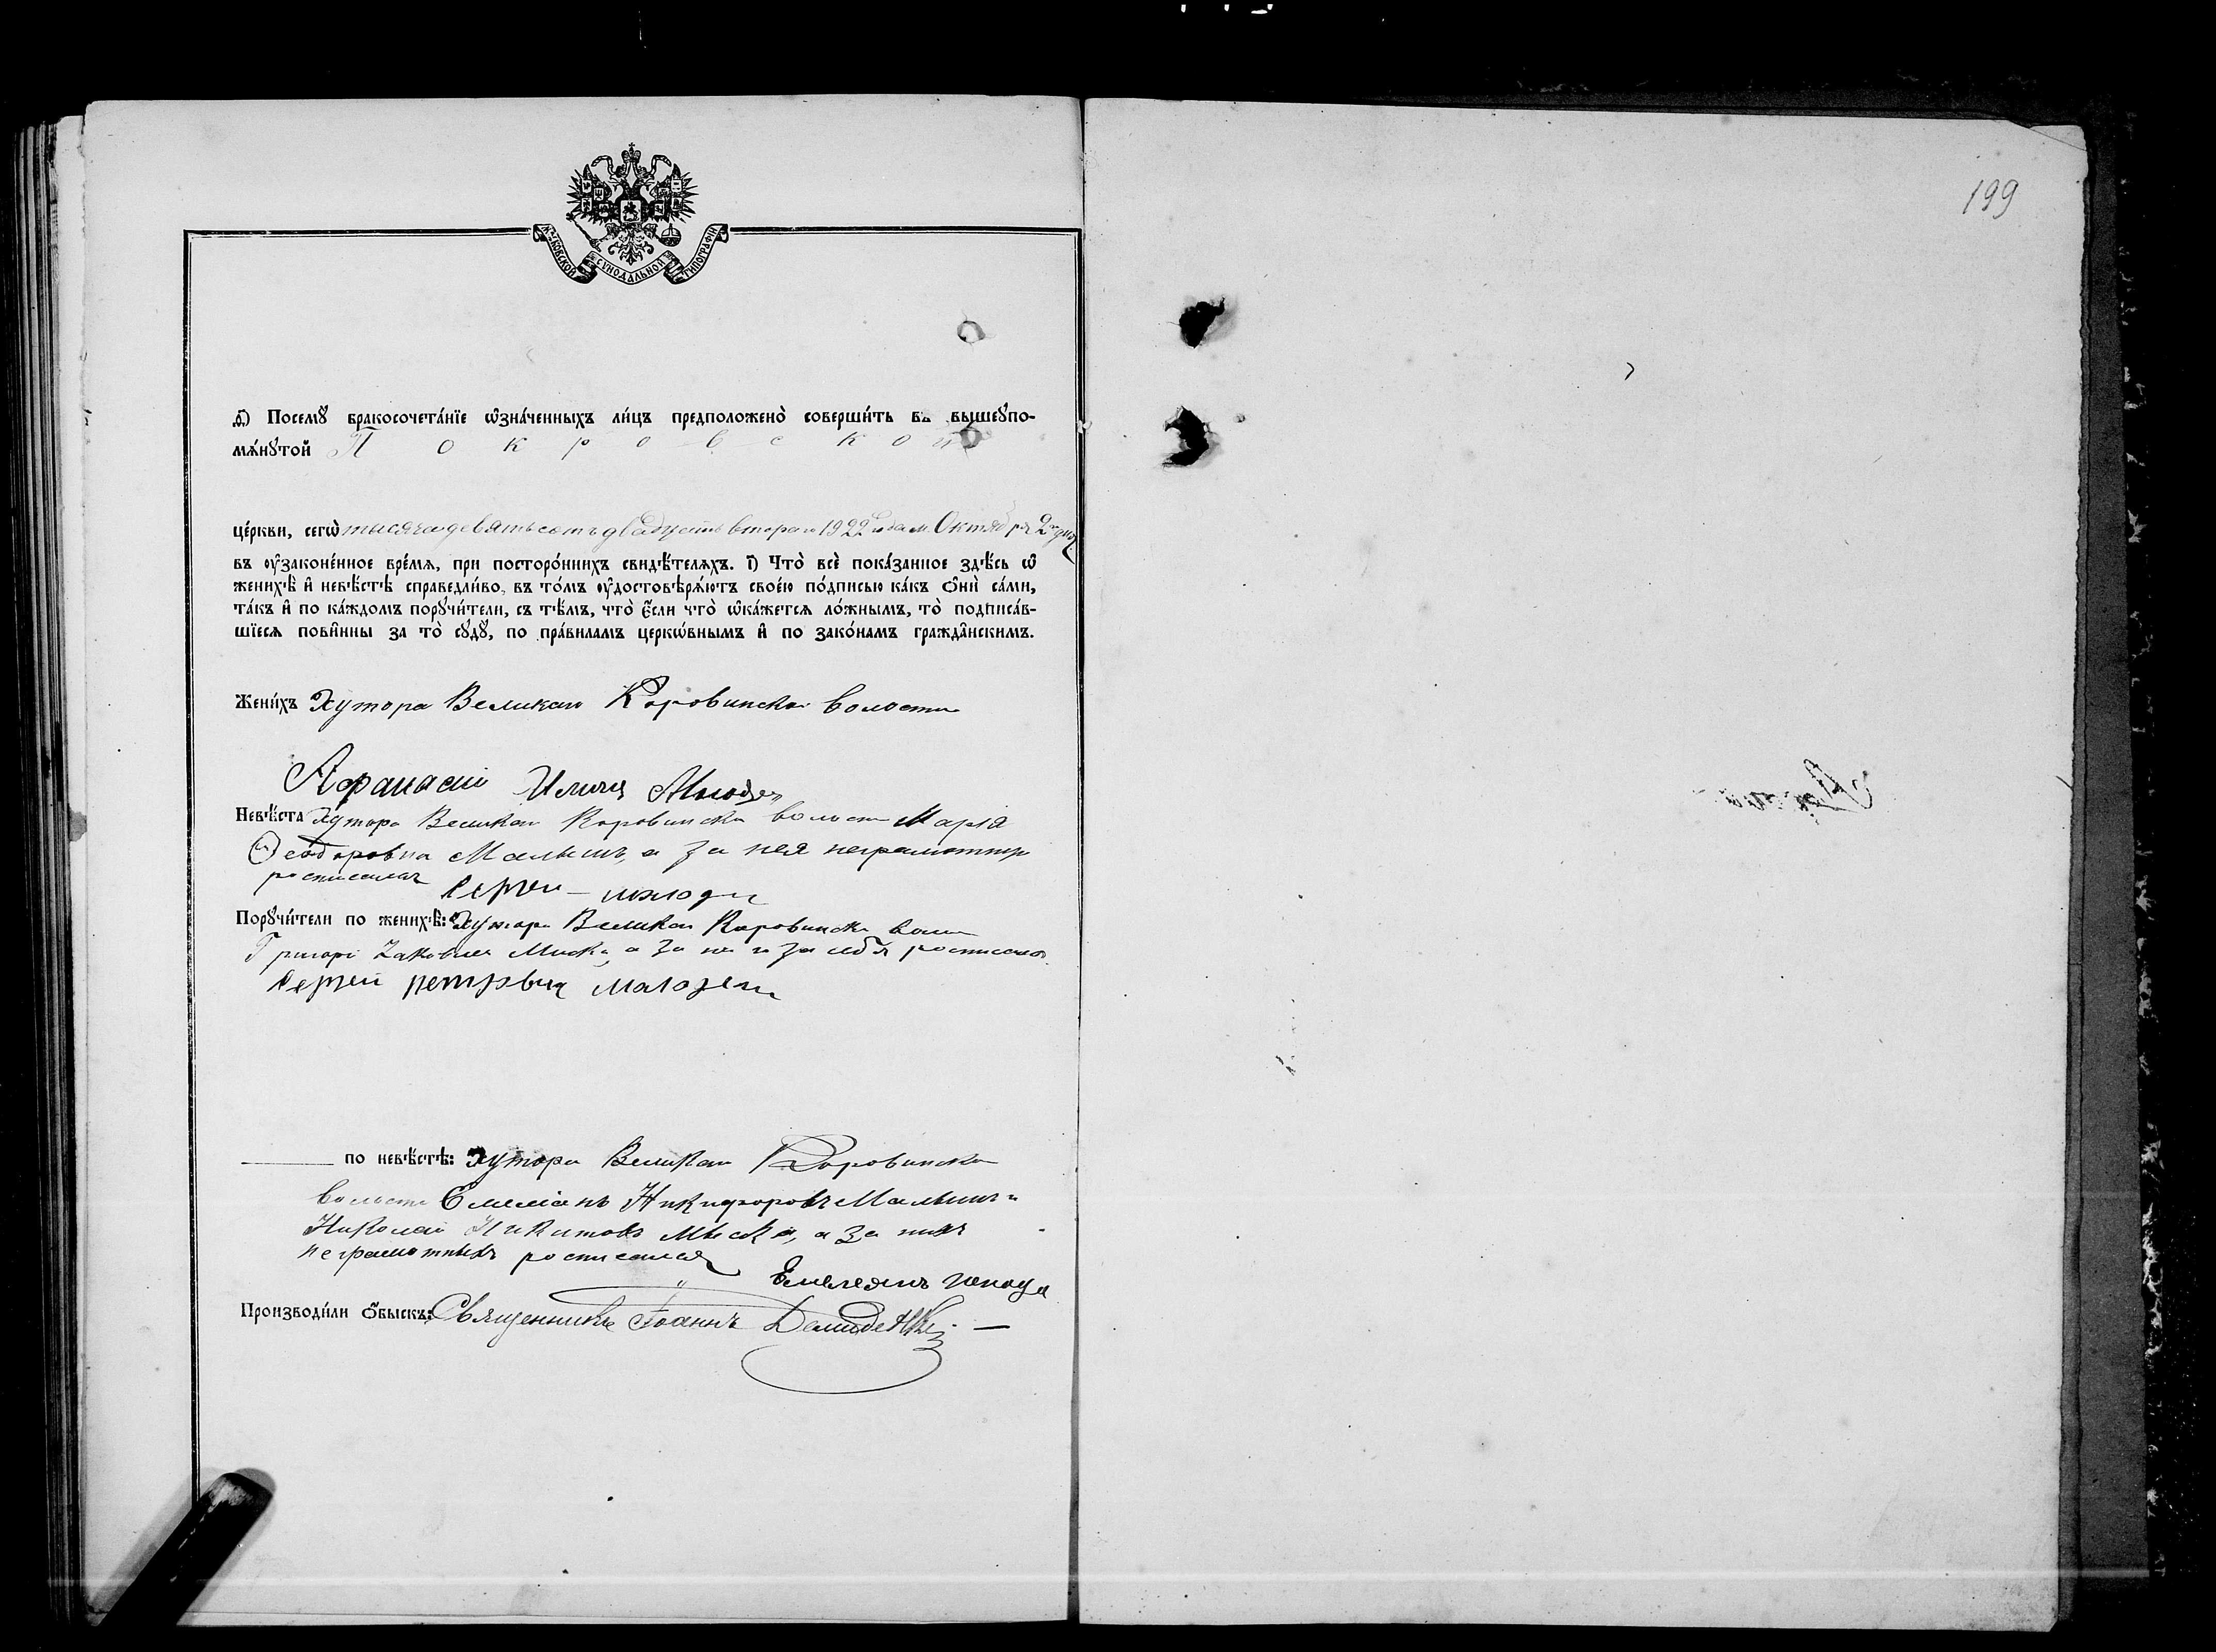 199
МОСКОВСКОЙ СУНОДАЛЬНОЙ ТИПОГРАФІИ
д҃) Посемꙋ̀ бракосочета́нїе ѡ҆зна́ченныхъ ли́цъ предположено̀ соверши́ть въ вышеꙋпо-
мѧ́нꙋтой Покровской
це́ркви, сегѡ̀ тысяча девятьсотъ двадцать второго 1922 года м. Октября 2го дня
въ ᲂу҆законе́нное вре́мѧ, при посторо́ннихъ свидѣ́телѧхъ. і҃) Что̀ всѐ пока́занное здѣ́сь ѡ҆
женихѣ̀ и҆ невѣ́стѣ справедли́во, въ то́мъ ᲂу҆достовѣрѧ́ютъ свое́ю по́дписью ка́къ ѻ҆нѝ са́ми,
та́къ и҆ по ка́ждомъ порꙋчи́тели, съ тѣ́мъ, что̀ є҆́сли что̀ ѡ҆ка́жетсѧ ло́жнымъ, то̀ подписа́в-
шїесѧ пови́нны за то̀ сꙋдꙋ̀, по пра́виламъ церкѡ́внымъ и҆ по зако́намъ гражда̑нскимъ.
Жени́хъ Хутора Великаго Коровинской волости
Афанасій Илич
Невѣ́ста Хутора Великаго Коровинской волости Марія
Ѳеодоровна Малышъ, а за нея неграмотную
росписался Сергей
Порꙋчи́тели по женихѣ̀: Хутора Великаго Коровинской волости
Григорій Яковлев Миска, а за него и за себя росписался
Сергей петровыч молодец
по невѣ́стѣ: Хутора Великаго Коровинской
волости Емеліанъ Никифоровъ Малышъ и
Николай Никитовъ Миска, а за них
неграмотныхъ росписался
Емелеянъ
Производи́ли ѻ҆́быскъ: Священникъ Іоаннъ Демиденко